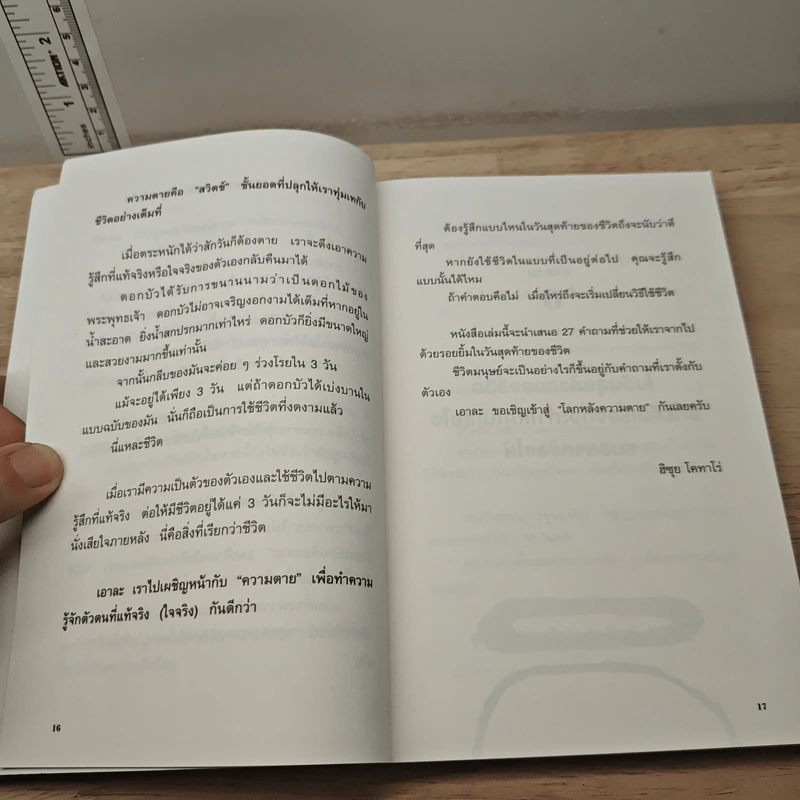 ความตายคือ "สวิตช์" ขั้นยอดที่ปลุกให้เราทุ่มเทกับ
ชีวิตอย่างเต็มที่
เมื่อตระหนักได้ว่าสักวันก็ต้องตาย เราจะดึงเอาความ
รู้สึกที่แท้จริงหรือใจจริงของตัวเองกลับคืนมาได้
ดอกบัวได้รับการขนานนามว่าเป็นดอกไม้ของ
พระพุทธเจ้า ดอกบัวไม่อาจเจริญงอกงามได้เต็มที่หากอยู่ใน
น้ำสะอาด ยิ่งน้ำสกปรกมากเท่าไหร่ ดอกบัวก็ยิ่งมีขนาดใหญ่
และสวยงามมากขึ้นเท่านั้น
จากนั้นกลีบของมันจะค่อย ๆ ร่วงโรยใน 3 วัน
แม้จะอยู่ได้เพียง 3 วัน แต่ถ้าดอกบัวได้เบ่งบานใน
แบบฉบับของมัน นั่นก็ถือเป็นการใช้ชีวิตที่งดงามแล้ว
นี่แหละชีวิต
เมื่อเรามีความเป็นตัวของตัวเองและใช้ชีวิตไปตามความ
รู้สึกที่แท้จริง ต่อให้มีชีวิตอยู่ได้แค่ 3 วันก็จะไม่มีอะไรให้มา
นั่งเสียใจภายหลัง นี่คือสิ่งที่เรียกว่าชีวิต
เอาละ เราไปเผชิญหน้ากับ "ความตาย" เพื่อทำความ
รู้จักตัวตนที่แท้จริง (ใจจริง) กันดีกว่า
16
ต้องรู้สึกแบบไหนในวันสุดท้ายของชีวิตถึงจะนับว่าดี
ที่สุด
หากยังใช้ชีวิตในแบบที่เป็นอยู่ต่อไป คุณจะรู้สึก
แบบนั้นได้ไหม
ถ้าคำตอบคือไม่ เมื่อไหร่ถึงจะเริ่มเปลี่ยนวิธีใช้ชีวิต
หนังสือเล่มนี้จะนำเสนอ 27 คำถามที่ช่วยให้เราจากไป
ด้วยรอยยิ้มในวันสุดท้ายของชีวิต
ชีวิตมนุษย์จะเป็นอย่างไรก็ขึ้นอยู่กับคำถามที่เราตั้งกับ
ตัวเอง
เอาละ ขอเชิญเข้าสู่ "โลกหลังความตาย" กันเลยครับ
ฮิซุย โคทาโร่
17
AKTION
inches
1
2